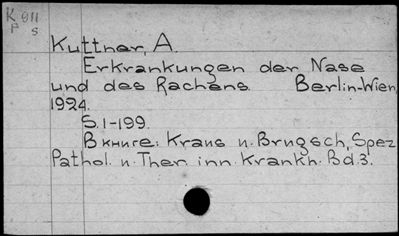 K 911
P s
Kuttner, A.
Erkrankungen der Nase
und des Rachens. Berlin-Wien,
1924.
S. 1-199.
В книге: Kraus u. Brugsch, Spez.
Pathol. u. Ther. inn. Krankh. Bd. 3.